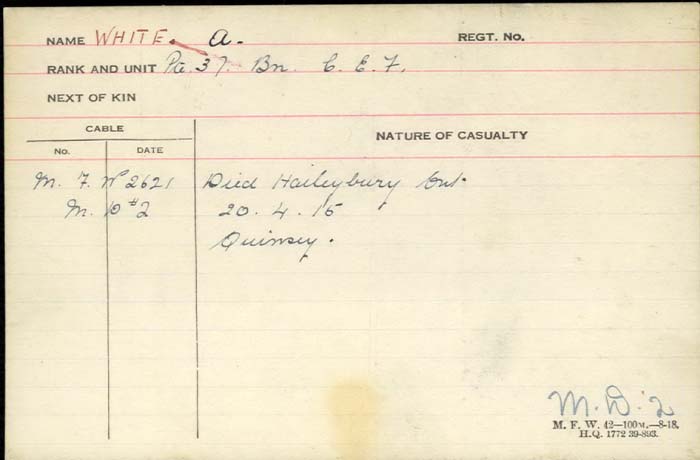 NAME WHITE. A. REGT. No.
RANK AND UNIT Pte. 37. Bn. C. E. F.
NEXT OF KIN
CABLE NATURE OF CASUALTY
No. DATE
M. F. W 2621 Died Haileybury Ont.
M. D #2 20. 4. 15
Quinsey.
M. D. 2
M. F. W. 42—100M.—8-18.
H.Q. 1772 39-893.